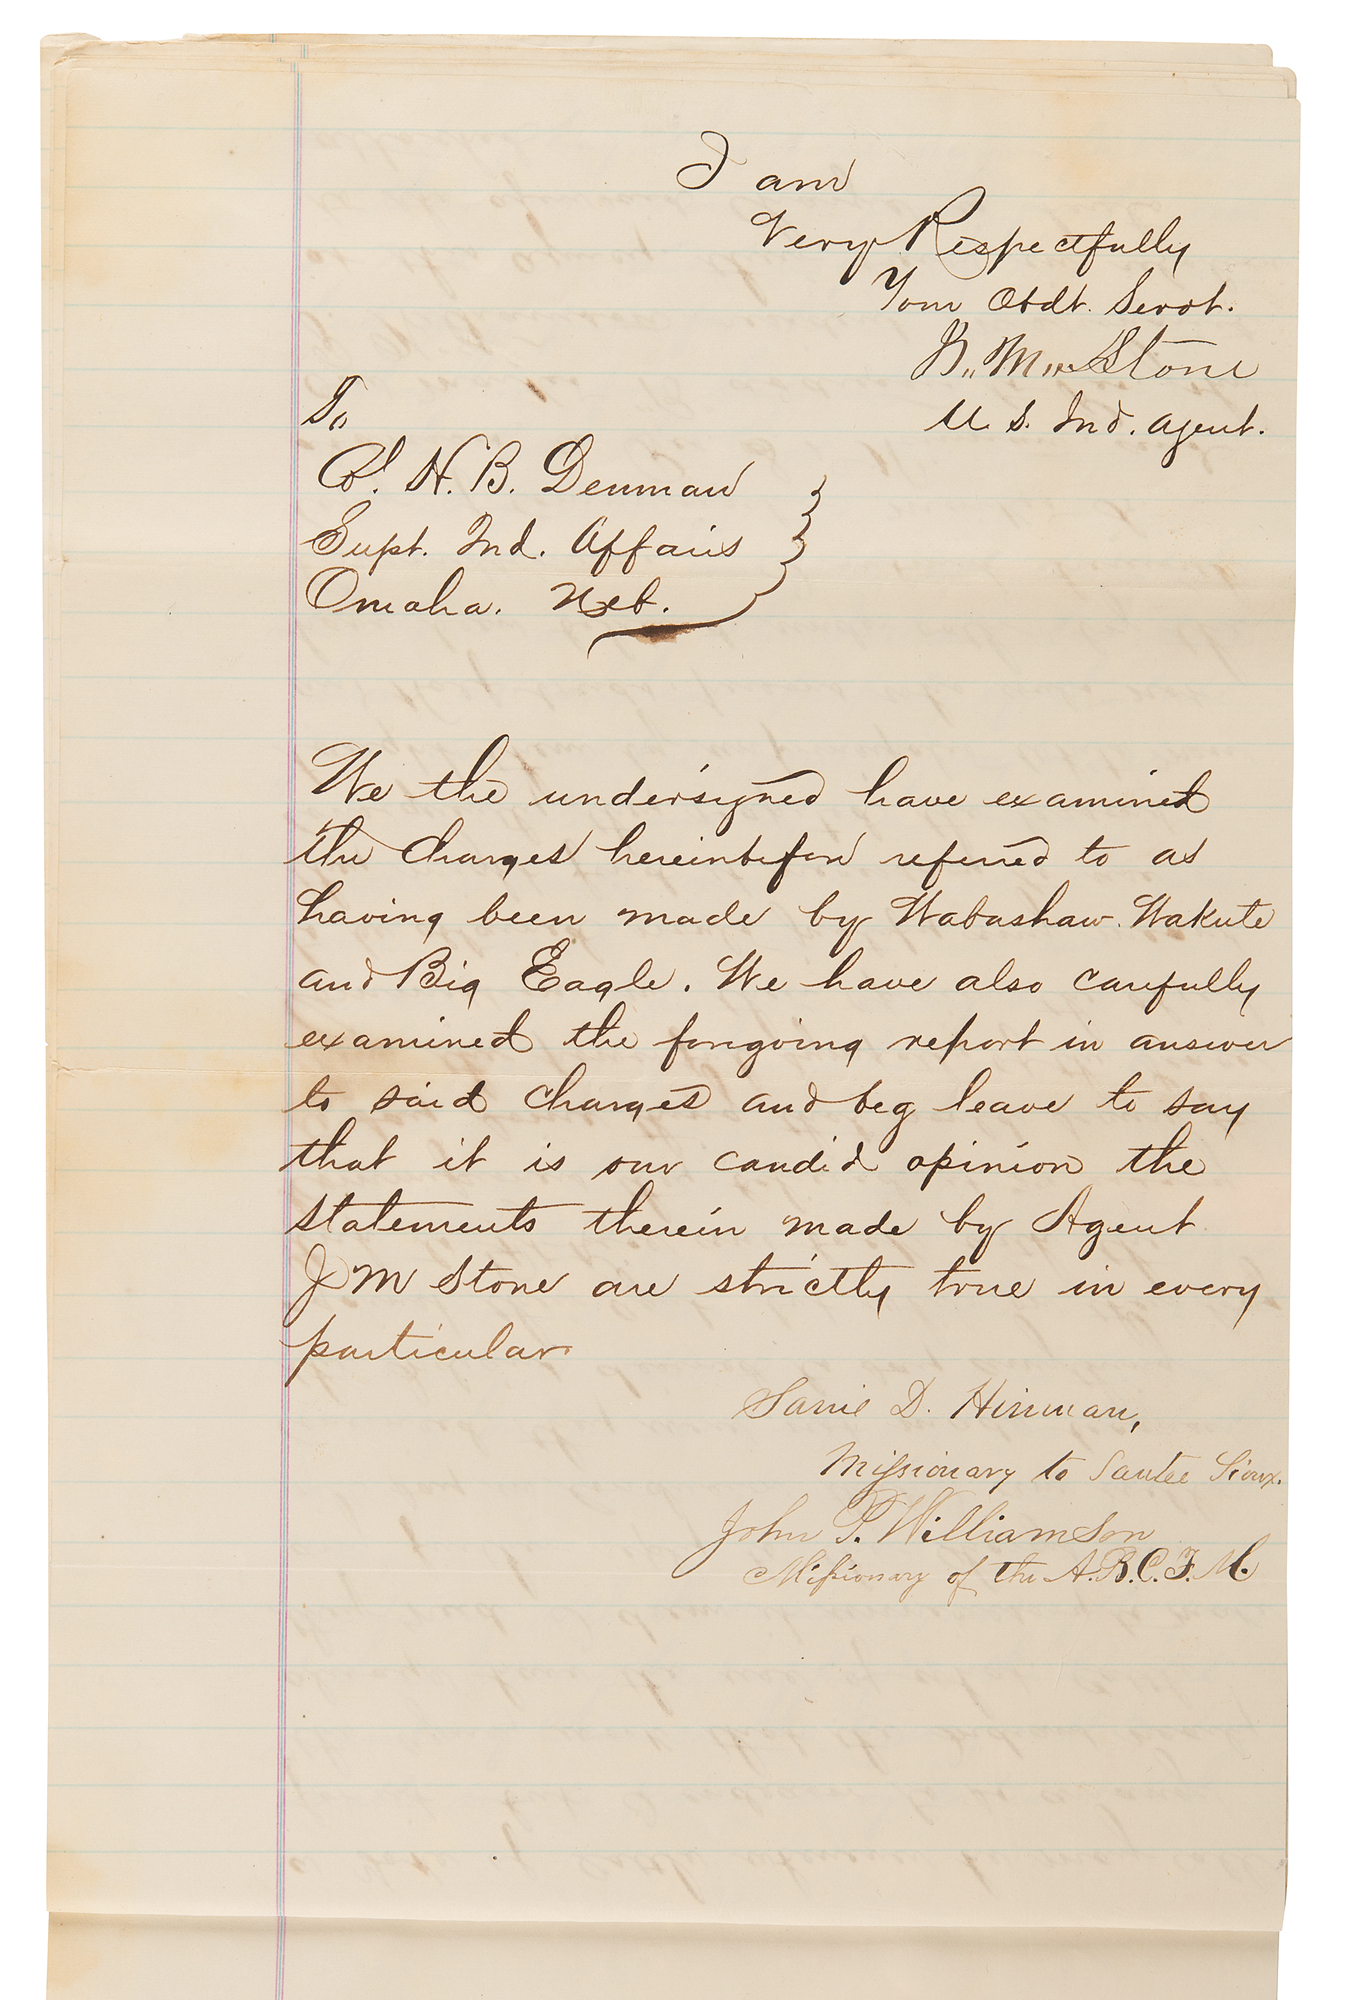 I am
Very Respectfully
Your Obdt. Servt.
J. M. Stone
U. S. Ind. Agent.
To
Col. H. B. Denman
Supt. Ind. Affairs
Omaha. Neb.
We the undersigned have examined
the charges hereinbefore referred to as
having been made by Wabashaw. Wakute
and Big Eagle. We have also carefully
examined the forgoing report in answer
to said charges and beg leave to say
that it is our candid opinion the
statements therein made by Agent
J M Stone are strictly true in every
particular.
D. Hinman,
Missionary to Santee Sioux.
John P. Williamson
Missionary of the A.B.C.F.M.